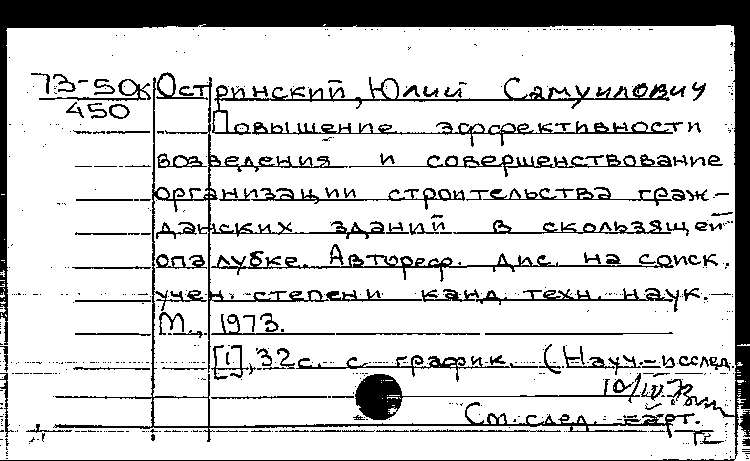 73-50к Остринский, Юлий Самуилович
450
Повышение эффективности
возведения и совершенствование
организации строительства граж-
данских зданий в скользящей
опалубке. Автореф. дис. на соиск.
учен. степени канд. техн. наук.
М., 1973.
[1], 32 с. с график. (Науч.-исслед
10/IV
См. след. карт.